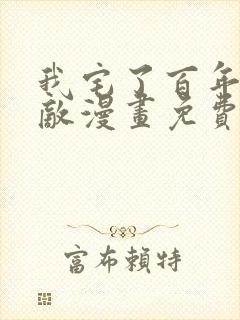 我宅了百年
敵漫畫免費
富布賴特